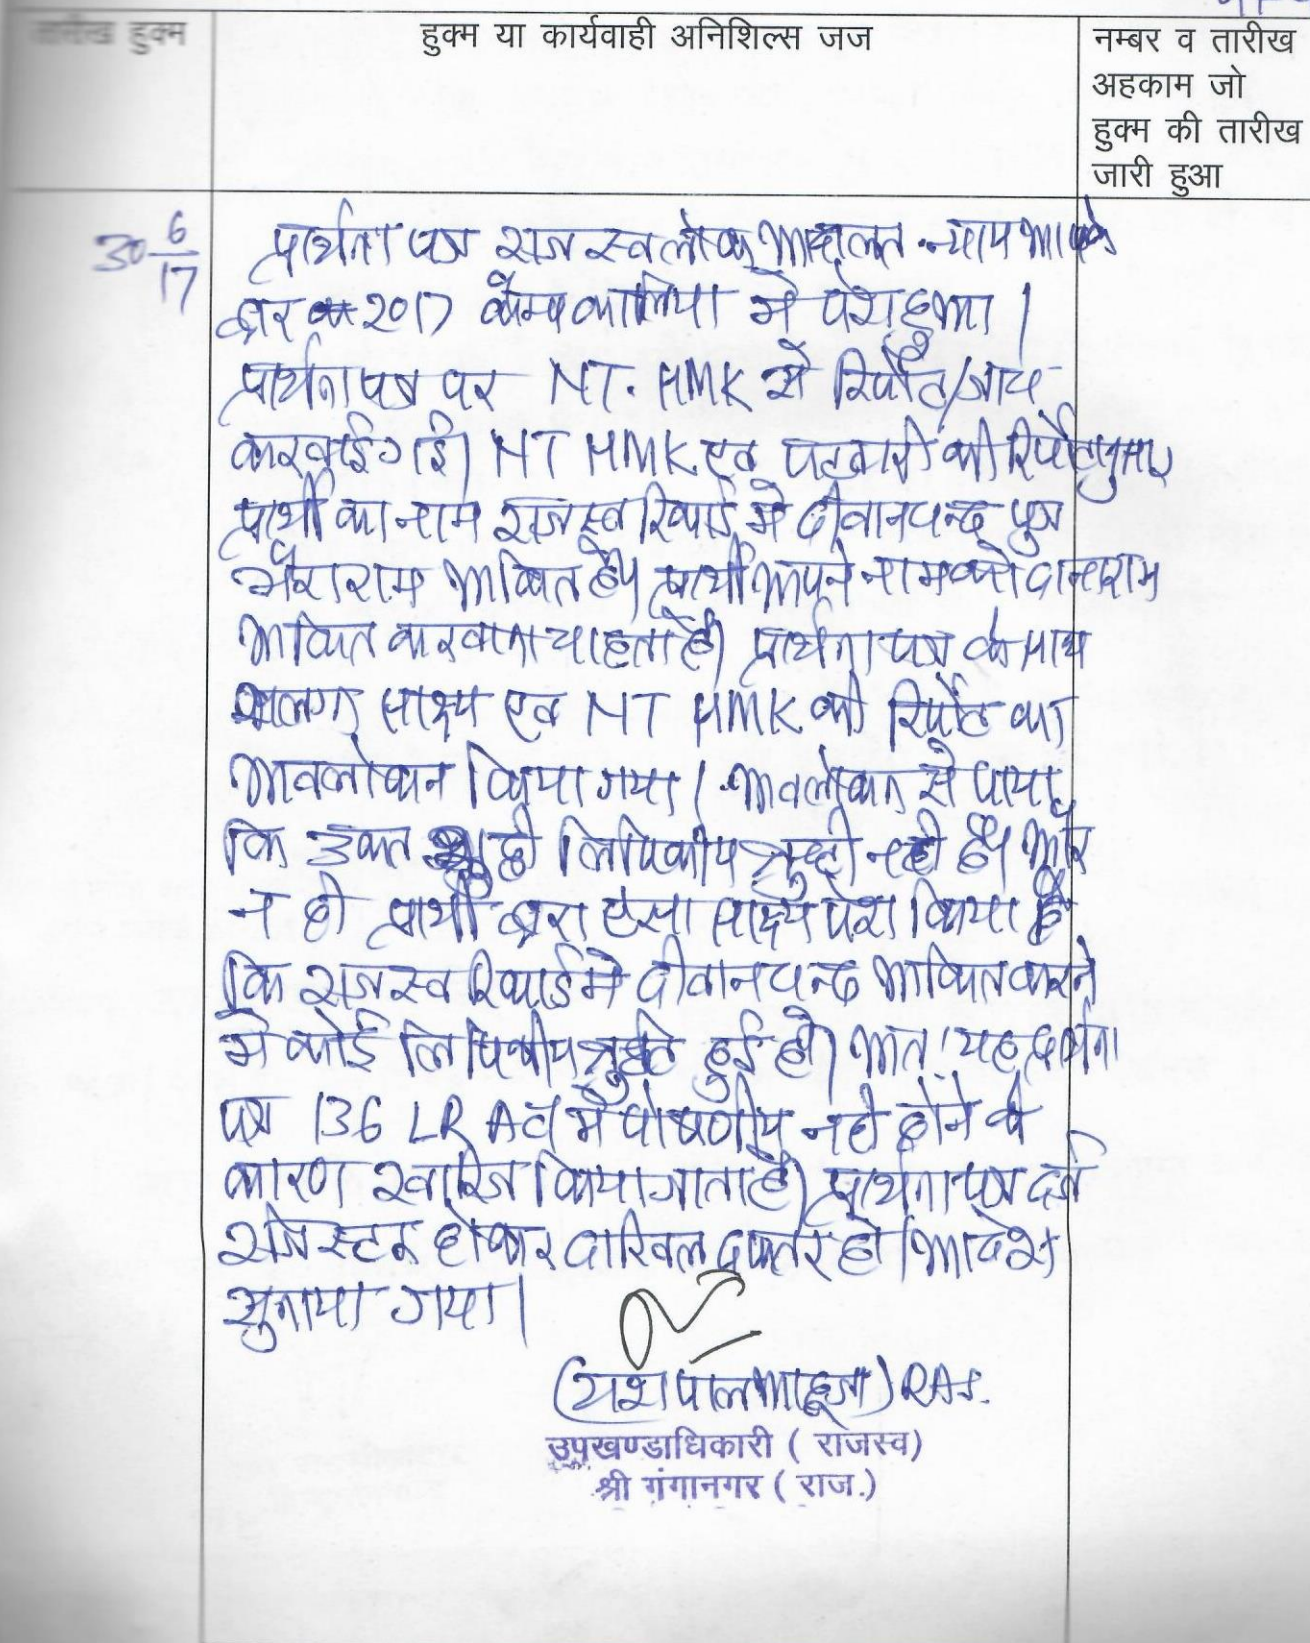 तारीख हुक्म
हुक्म या कार्यवाही अनिशिल्स जज
नम्बर व तारीख
अहकाम जो
हुक्म की तारीख
जारी हुआ
30-6/17
प्रार्थना पत्र राजस्व लोक अदालत न्याय आपके
द्वार 2017 कैम्प कालिया में पेश हुआ।
प्रार्थना पत्र पर NT. HMK से रिर्पोट/जांच
करवाई गई। NT HMK एव पटवारी की रिर्पोटानुसार
प्रार्थी का नाम राजस्व रिकार्ड मे दीवानचन्द पुत्र
राम अंकित है। प्रार्थी अपने नाम को दानाराम
अंकित करवाना चाहता है। प्रार्थना पत्र के साथ
सलग्न साक्ष्य एव NT HMK की रिर्पोट का
अवलोकन किया गया। अवलोकन से पाया
कि उक्त लिपिकीय त्रुटी नही है। और
न ही प्रार्थी द्वारा ऐसा साक्ष्य पेश किया है
कि राजस्व रिकार्ड मे दीवानचन्द अंकित करने
मे कोई लिपिकीय त्रुटि हुई हो। अतः यह प्रार्थना
पत्र 136 LR Act में पोषणीय नही होने के
कारण खारिज किया जाता है। प्रार्थना पत्र दर्ज
रजिस्टर होकर दाखिल दफ्तर हो। आदेश
सुनाया गया।
(यशपाल आहूजा) RAS.
उपखण्डाधिकारी ( राजस्व)
श्री गंगानगर ( राज.)